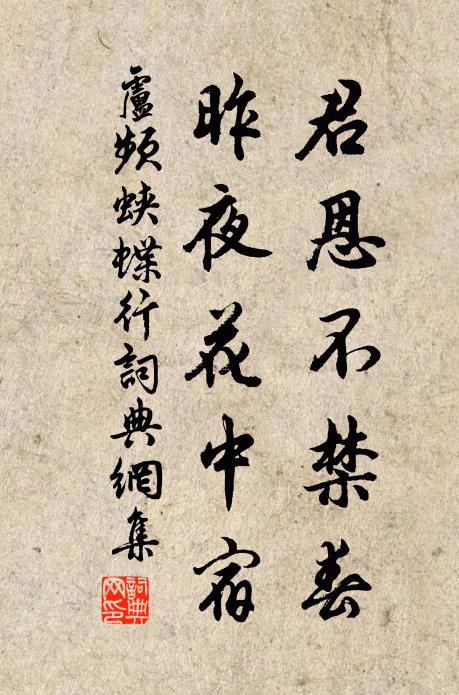 君恩不禁春
昨夜花中宿
盧頻蛺蝶行詞典網集
詞典
网印